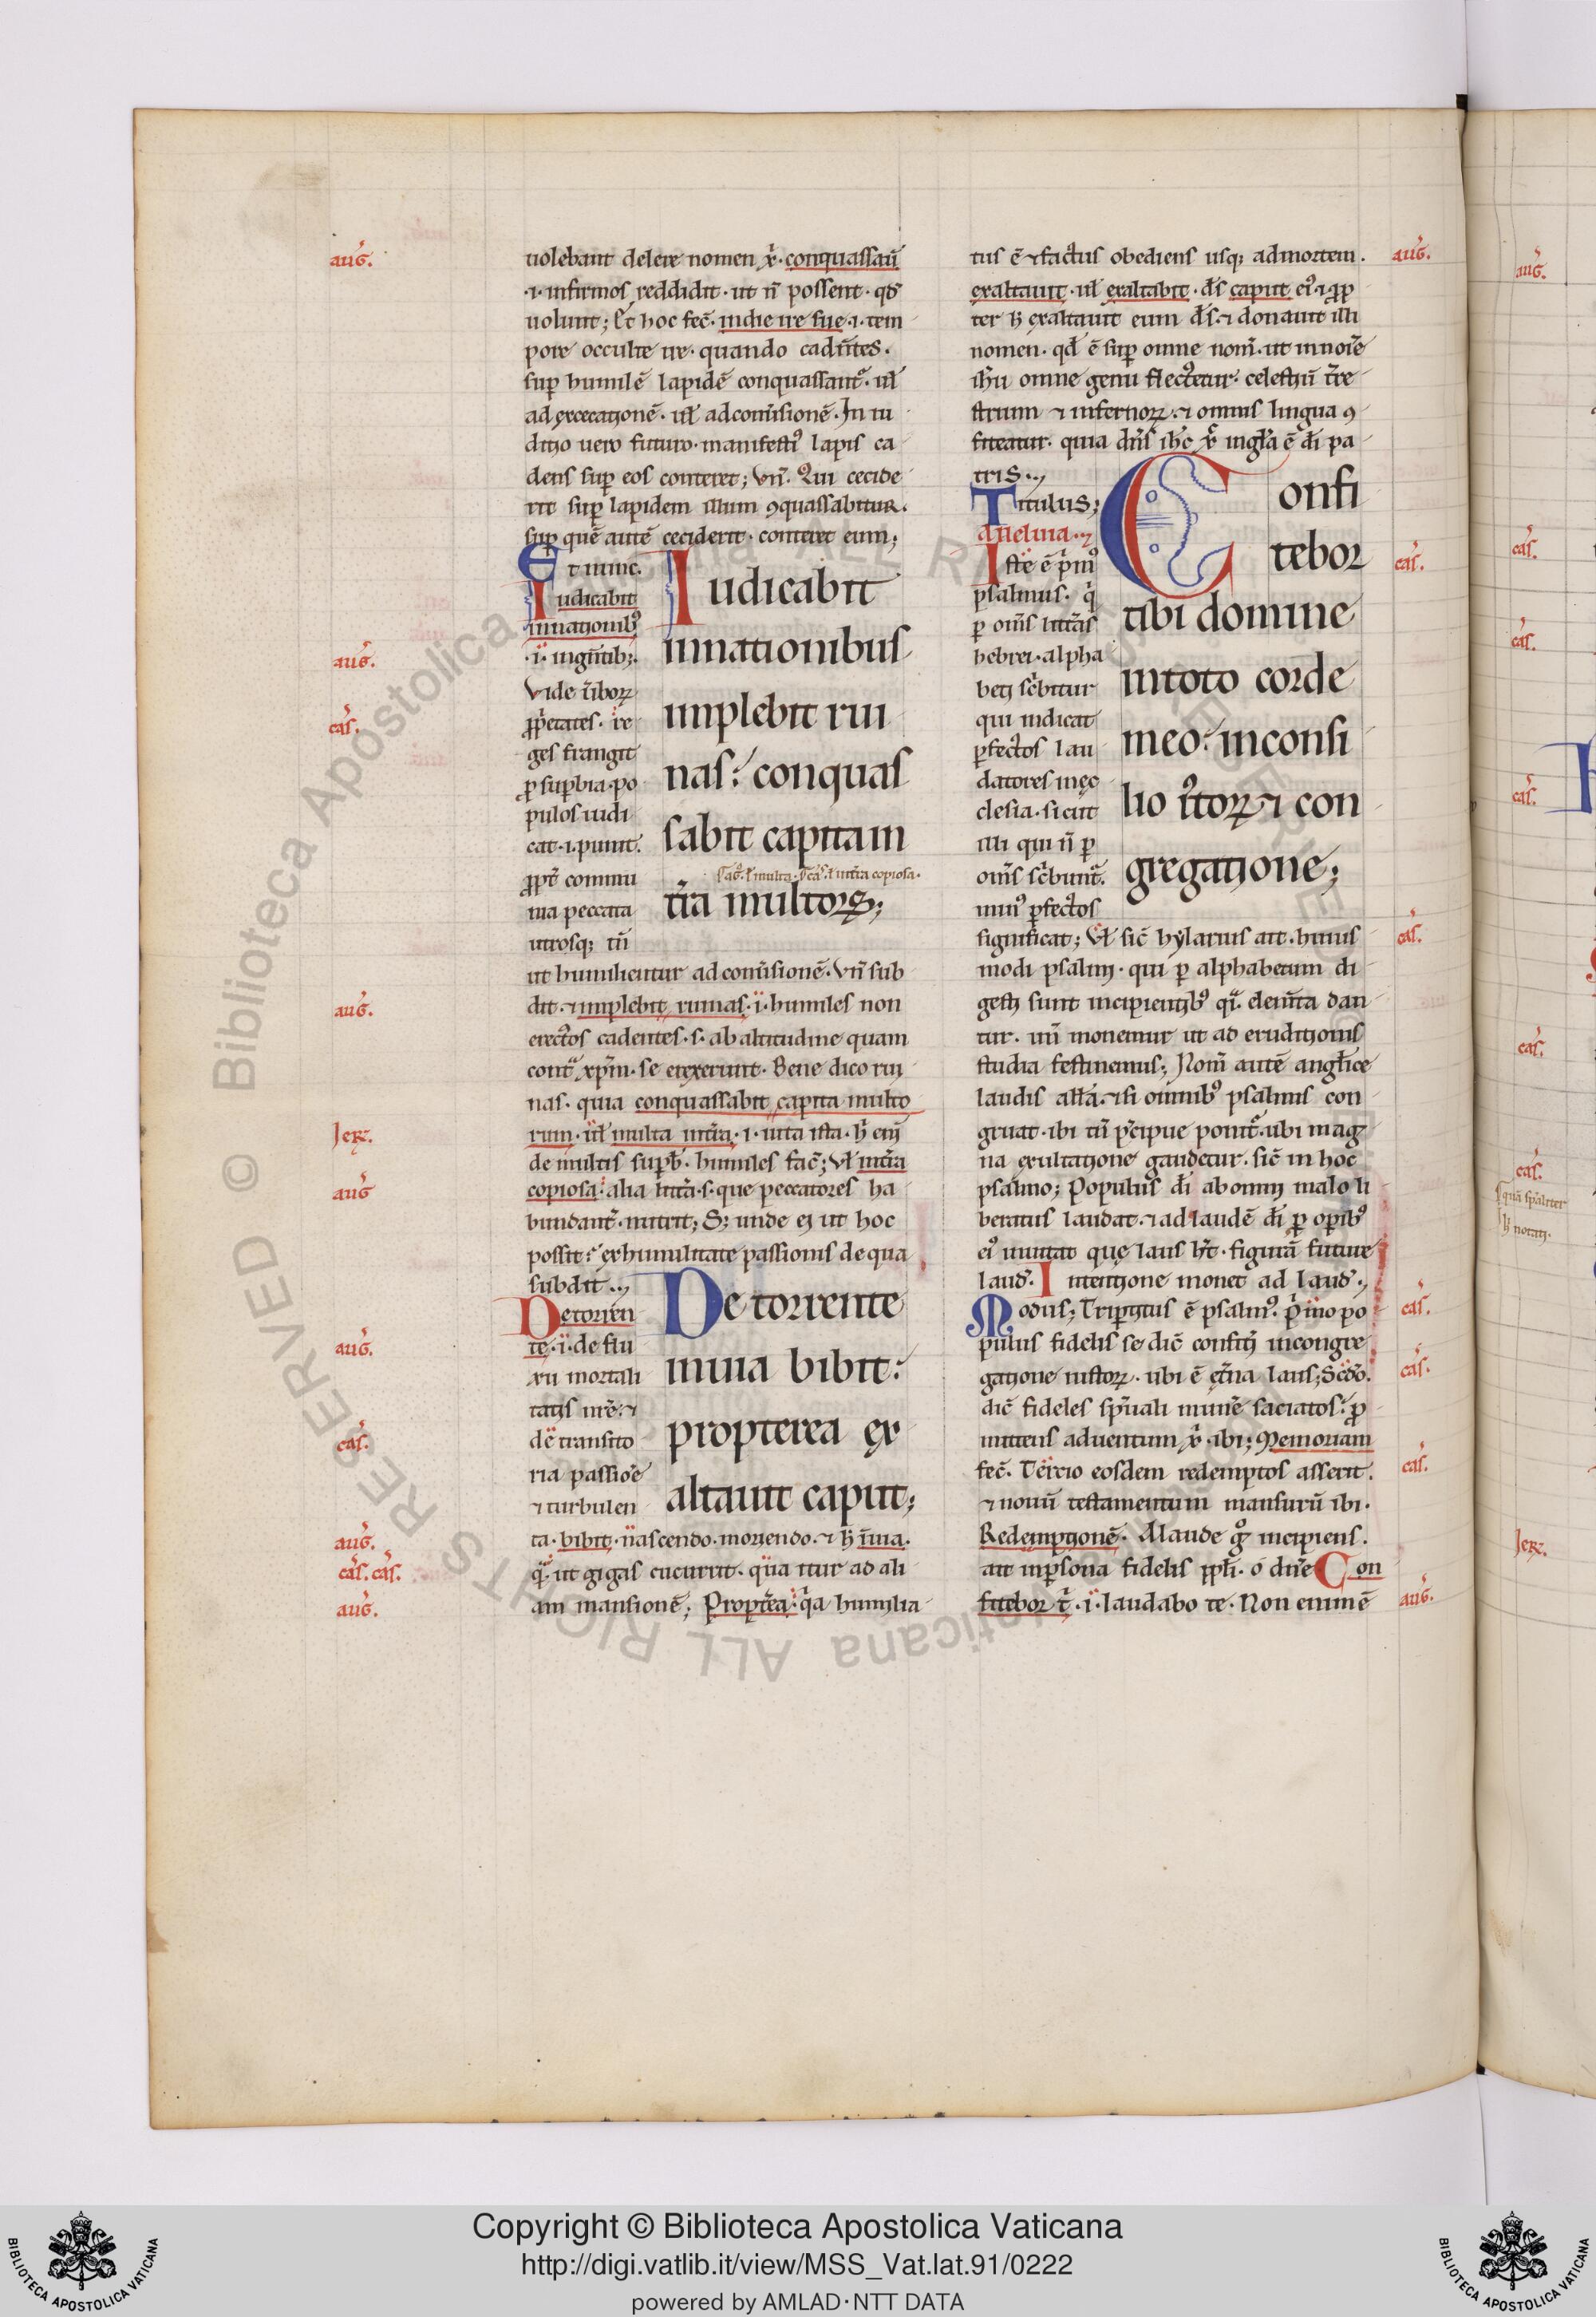 uolebant delere nomen xp̄i· conquassauit̄
·i· infirmos reddidit· ut n̄ possent· qd̄
uolunt; Et hoc fec̄· in die ire sue·i·tem
pore occulte ire· quando cadn̄tes·
sup̱ humilē lapidē conquassant᷑· ul̄
ad excecationē· ul̄ ad conu̾sionē· In iu
ditio uero futuro· manifestꝰ lapis ca
dens sup̱ eos conteret; Vn̄· Qui cecide
rit sup̱ lapidem illum ꝯquassabitur·
sup̱ quē autē ceciderit· conteret eum;
Et nunc·
Iudicabit
in nationibꝰ
·i· in gn̄tib;·
Vide u̾borꝝ
ꝓp̾etates· re
ges frangit
ꝑ sup̱bia· po
pulos iudi
cat·i·punit·
ꝓpt̾ commu
nia peccata
utrosq; tn̄
Iudicabit
in nationibus
implebit rui
nas: conquas
sabit capita in
t̾ra multorꝝ;
ut humilientur ad conu̾sionē· Vn̄ sub
dit· ⁊ implebit ruinas·i· humiles non
erectos cadentes·s· ab altitudine quam
contᷓ xp̄m· se erexerunt· Bene dico rui
nas· quia conquassabit capita multo
rum· ul̄ multa in t̾ra·i·in uita ista· h̾ enī
de multis sup̱b̾· humiles fac̄; Vl̄ in t̾ra
copiosa· alia litt̾a·s· que peccatores ha
bundant᷑· nutrit; S; unde ei ut hoc
possit: ex humilitate passionis de qua
subdit·.,
De torren
te·i·de flu
xu mortali
tatis nr̄e·⁊
de transito
ria passiōe
⁊ turbulen
De torrente
in uia bibit:
propterea ex
altauit caput;
ta· bibit· nascendo· moriendo· ⁊ h̾ in uia·
qᷓ· ut gigas cucurrit· qua itur ad ali
am mansionē; Propt̾ea· qᷓa humilia
tus ē ⁊ factus obediens usq; ad mortem·
exaltauit· ul̄ exaltabit· ds̄ caput eiꝰ·i·ꝓp
ter h̾ exaltauit eum ds̄·⁊ donauit illi
nomen· qd̄ ē sup̱ omne nom̄· ut in noīe
ih̄u omne genu flectetur· celestiū t̾re
strium ⁊ infernorꝝ·⁊ omnis lingua ꝯ
fiteatur· quia dn̄s ih̄c xp̄c in gl̄a ē dī pa
tris·.,
Titulus;
alleluia·.,
Iste ē p̾mꝰ
psalmus· q̾
ꝑ om̄s litt̾as
hebrei· alpha
beti sc̾bitur
qui indicat
ꝑfectos lau
datores in ęc
clesia· sicut
illi qui n̄ ꝑ
om̄s sc̾bunt᷑·
minꝰ ꝑfectos
Confi
tebor
tibi domine
in toto corde
meo: in consi
lio iu̾torꝝ ⁊ con
gregatione;
significat; Vl̄ sic̄ hylarius ait· huius
modi psalmi· qui ꝑ alphabetum di
gesti sunt incipientibꝰ qᷓi· elem̄ta dan
tur· un̄ monemur ut ad eruditionis
studia festinemus; Nom̄ autē anglice
laudis all̄a·⁊ si omnibꝰ psalmis con
gruat· ibi tn̄ p̾cipue ponit᷑· ubi mag
na exultatione gaudetur· sic̄ in hoc
psalmo; Populus dī ab omni malo li
beratus laudat·⁊ ad laudē dī ꝑ opībꝰ
eiꝰ inuitat quę laus h̾t· figurā future
laud̾· Intentione monet ad laud̾·.,
Modus; Trip̱titus ē psalmꝰ· p̾mo po
pulus fidelis se dic̄ confit̾i in congre
gatione iustorꝝ· ubi ē et̾na laus; Scd̄o·
dic̄ fideles spūali mun̾e saciatos: ꝓ
mittens aduentum xp̄i· ibi; Memoriam
fec̄· Tercio eosdem redemptos asserit·
⁊ nouū testamentum mansurū ibi·
Redemptionē· A laude g̊ incipiens·
ait in p̱sona fidelis ppl̄i· o dn̄e Con
fitebor t̾·i·laudabo te· Non enim ē
auḡ.
auḡ.
cas̄.
auḡ.
Ier̄.
auḡ
auḡ.
cas̄.
auḡ.
cas̄. cas̄.
auḡ.
auḡ.
cas̄.
cas̄.
cas̄.
cas̄.
cas̄.
auḡ.
auḡ.
cas̄.
cas̄.
cas̄.
cas̄.
cas̄.
Ier̄.
© Biblioteca Apostolica Vaticana ALL RIGHTS RESERVED
BIBLIOTECA APOSTOLICA VATICANA
Copyright © Biblioteca Apostolica Vaticana
http://digi.vatlib.it/view/MSS_Vat.lat.91/0222
powered by AMLAD·NTT DATA
BIBLIOTECA APOSTOLICA VATICANA